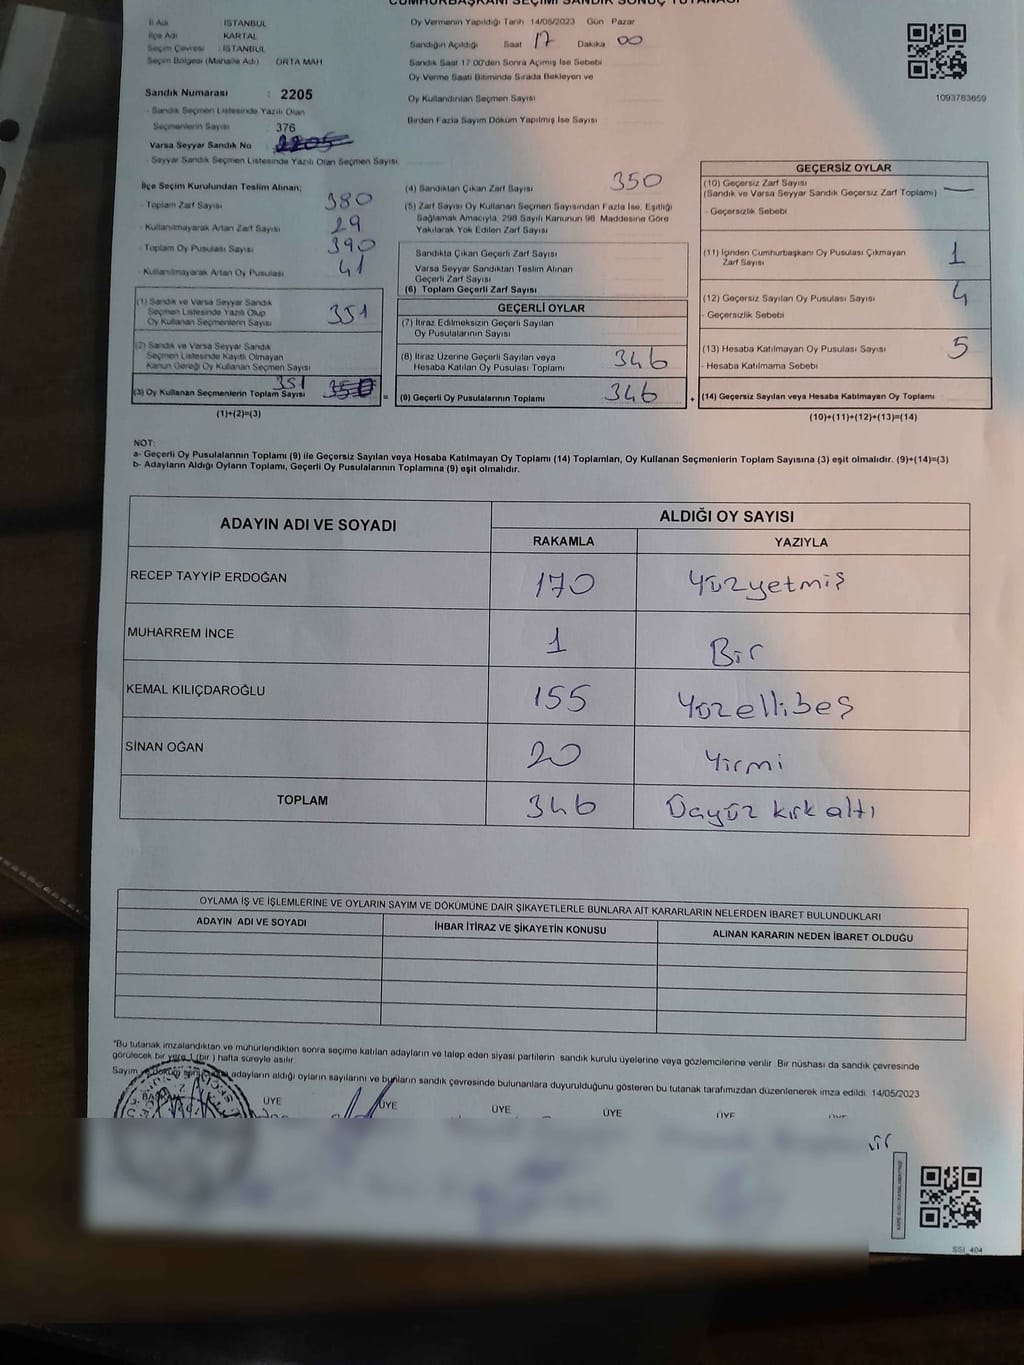 CUMHURBAŞKANI SEÇİMİ SANDIK SONUÇ TUTANAĞI
İl Adı İSTANBUL
İlçe Adı KARTAL
Seçim Çevresi : İSTANBUL
Seçim Bölgesi (Mahalle Adı) ORTA MAH
Sandık Numarası : 2205
- Sandık Seçmen Listesinde Yazılı Olan
Seçmenlerin Sayısı : 376
Varsa Seyyar Sandık No
- Seyyar Sandık Seçmen Listesinde Yazılı Olan Seçmen Sayısı
Oy Vermenin Yapıldığı Tarih 14/05/2023 Gün Pazar
Sandığın Açıldığı Saat 17 Dakika 00
Sandık Saat 17:00'den Sonra Açılmış İse Sebebi
Oy Verme Saati Bitiminde Sırada Bekleyen ve
Oy Kullandırılan Seçmen Sayısı
Birden Fazla Sayım Döküm Yapılmış İse Sayısı
1093763659
İlçe Seçim Kurulundan Teslim Alınan;
- Toplam Zarf Sayısı 380
- Kullanılmayarak Artan Zarf Sayısı 29
- Toplam Oy Pusulası Sayısı 390
- Kullanılmayarak Artan Oy Pusulası 41
(1) Sandık ve Varsa Seyyar Sandık
Seçmen Listesinde Yazılı Olup
Oy Kullanan Seçmenlerin Sayısı 351
(2) Sandık ve Varsa Seyyar Sandık
Seçmen Listesinde Kayıtlı Olmayan
Kanun Gereği Oy Kullanan Seçmen Sayısı
351
(3) Oy Kullanan Seçmenlerin Toplam Sayısı 350 =
(1)+(2)=(3)
(4) Sandıktan Çıkan Zarf Sayısı 350
(5) Zarf Sayısı Oy Kullanan Seçmen Sayısından Fazla İse, Eşitliği
Sağlamak Amacıyla, 298 Sayılı Kanunun 98. Maddesine Göre
Yakılarak Yok Edilen Zarf Sayısı
Sandıkta Çıkan Geçerli Zarf Sayısı
Varsa Seyyar Sandıktan Teslim Alınan
Geçerli Zarf Sayısı
(6) Toplam Geçerli Zarf Sayısı
GEÇERLİ OYLAR
(7) İtiraz Edilmeksizin Geçerli Sayılan
Oy Pusulalarının Sayısı
(8) İtiraz Üzerine Geçerli Sayılan veya
Hesaba Katılan Oy Pusulası Toplamı 346
(9) Geçerli Oy Pusulalarının Toplamı 346 +
GEÇERSİZ OYLAR
(10) Geçersiz Zarf Sayısı
(Sandık ve Varsa Seyyar Sandık Geçersiz Zarf Toplamı) —
- Geçersizlik Sebebi
(11) İçinden Cumhurbaşkanı Oy Pusulası Çıkmayan
Zarf Sayısı 1
(12) Geçersiz Sayılan Oy Pusulası Sayısı 4
- Geçersizlik Sebebi
(13) Hesaba Katılmayan Oy Pusulası Sayısı 5
- Hesaba Katılmama Sebebi
(14) Geçersiz Sayılan veya Hesaba Katılmayan Oy Toplamı
(10)+(11)+(12)+(13)=(14)
NOT:
a- Geçerli Oy Pusulalarının Toplamı (9) ile Geçersiz Sayılan veya Hesaba Katılmayan Oy Toplamı (14) Toplamları, Oy Kullanan Seçmenlerin Toplam Sayısına (3) eşit olmalıdır. (9)+(14)=(3)
b- Adayların Aldığı Oyların Toplamı, Geçerli Oy Pusulalarının Toplamına (9) eşit olmalıdır.
ADAYIN ADI VE SOYADI ALDIĞI OY SAYISI
RAKAMLA YAZIYLA
RECEP TAYYİP ERDOĞAN 170 Yüzyetmiş
MUHARREM İNCE 1 Bir
KEMAL KILIÇDAROĞLU 155 Yüzellibeş
SİNAN OĞAN 20 Yirmi
TOPLAM 346 Üçyüz kırk altı
OYLAMA İŞ VE İŞLEMLERİNE VE OYLARIN SAYIM VE DÖKÜMÜNE DAİR ŞİKAYETLERLE BUNLARA AİT KARARLARIN NELERDEN İBARET BULUNDUKLARI
ADAYIN ADI VE SOYADI İHBAR İTİRAZ VE ŞİKAYETİN KONUSU ALINAN KARARIN NEDEN İBARET OLDUĞU
*Bu tutanak imzalandıktan ve mühürlendikten sonra seçime katılan adayların ve talep eden siyasi partilerin sandık kurulu üyelerine veya gözlemcilerine verilir. Bir nüshası da sandık çevresinde
görülecek bir yere 1 (bir ) hafta süreyle asılır.
Sayım ve döküm sonucunu adayların aldığı oyların sayılarını ve bunların sandık çevresinde bulunanlara duyurulduğunu gösteren bu tutanak tarafımızdan düzenlenerek imza edildi. 14/05/2023
BAŞKAN ÜYE ÜYE ÜYE ÜYE ÜYE ÜYE
SSI_404